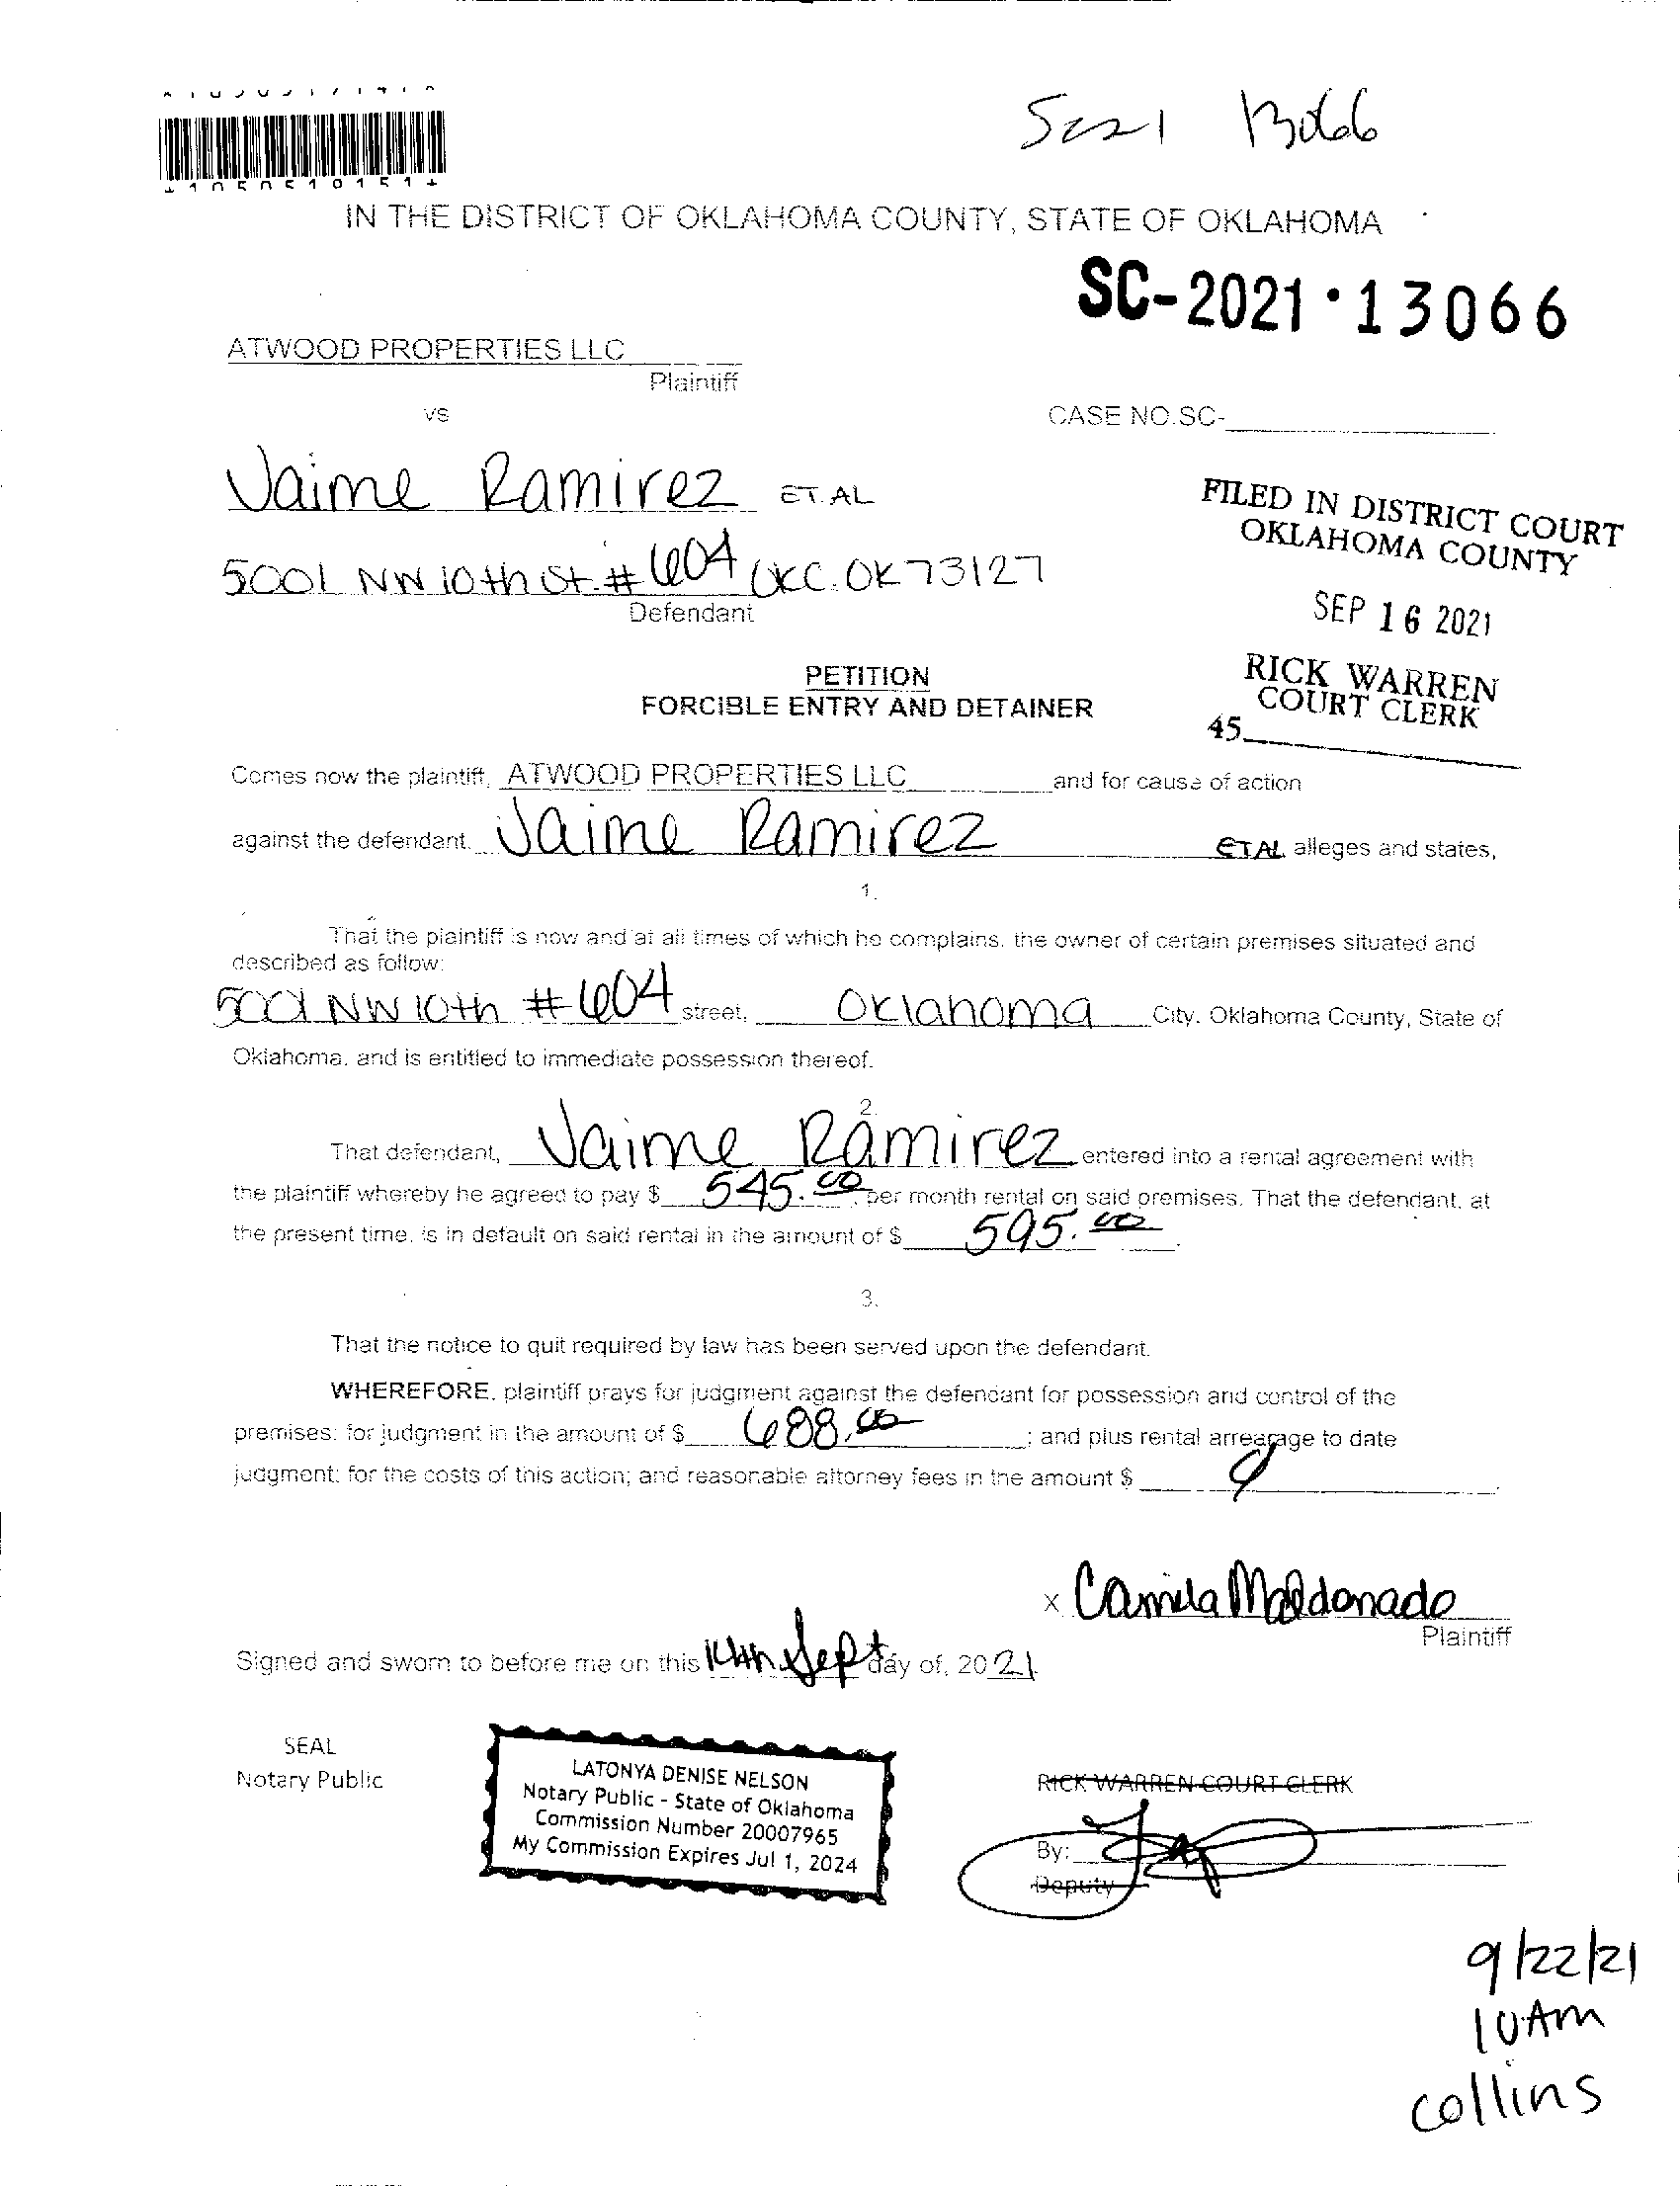 5221 13066
IN THE DISTRICT OF OKLAHOMA COUNTY, STATE OF OKLAHOMA
SC-2021·13066
ATWOOD PROPERTIES LLC
Plaintiff
vs
CASE NO.SC-
Jaime Ramirez ET. AL
5001 NW 10th St. # 604 OKC. OK 73127
Defendant
FILED IN DISTRICT COURT
OKLAHOMA COUNTY
SEP 16 2021
RICK WARREN
COURT CLERK
45
PETITION
FORCIBLE ENTRY AND DETAINER
Comes now the plaintiff, ATWOOD PROPERTIES LLC and for cause of action
against the defendant. Jaime Ramirez ETAL alleges and states,
1.
That the plaintiff is now and at all times of which he complains, the owner of certain premises situated and
described as follow:
5001 NW 10th # 604 street, Oklahoma City. Oklahoma County, State of
Oklahoma, and is entitled to immediate possession thereof.
2.
That defendant, Jaime Ramirez entered into a rental agreement with
the plaintiff whereby he agreed to pay $ 545.00 per month rental on said premises. That the defendant, at
the present time, is in default on said rental in the amount of $ 595.00
3.
That the notice to quit required by law has been served upon the defendant.
WHEREFORE, plaintiff prays for judgment against the defendant for possession and control of the
premises: for judgment in the amount of $ 688.00 ; and plus rental arrearage to date
judgment: for the costs of this action; and reasonable attorney fees in the amount $
x Camila Maldonado
Plaintiff
Signed and sworn to before me on this Sept day of, 2021
SEAL
Notary Public
LATONYA DENISE NELSON
Notary Public - State of Oklahoma
Commission Number 20007965
My Commission Expires Jul 1, 2024
RICK WARREN COURT CLERK
By:
Deputy
9/22/21
10AM
collins